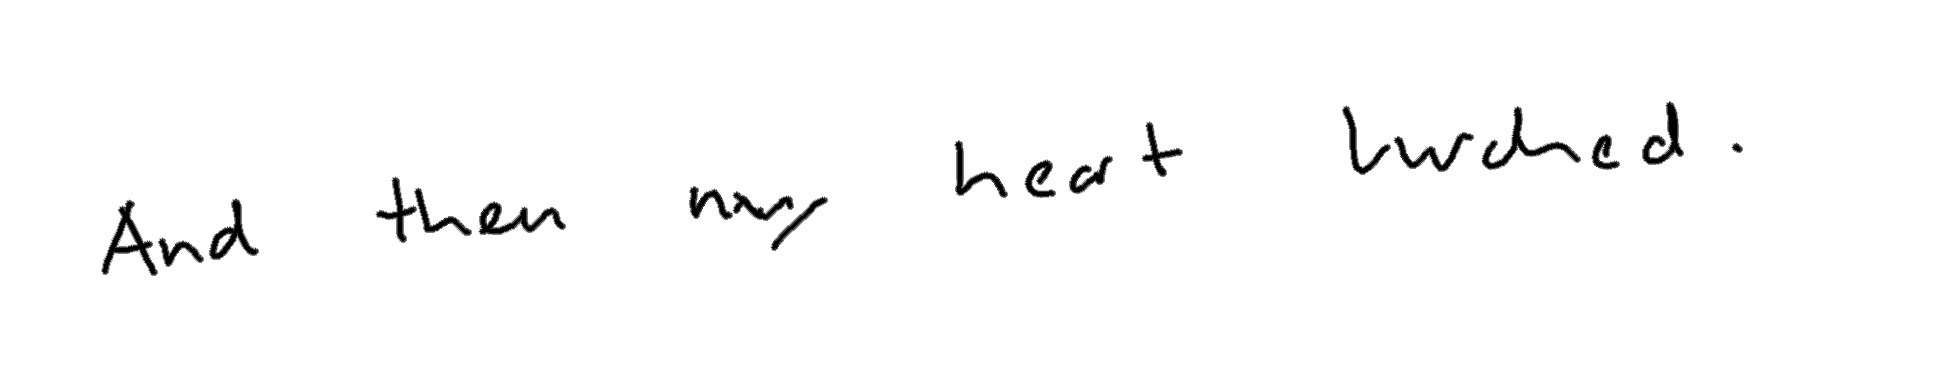 And then my heart lurched.